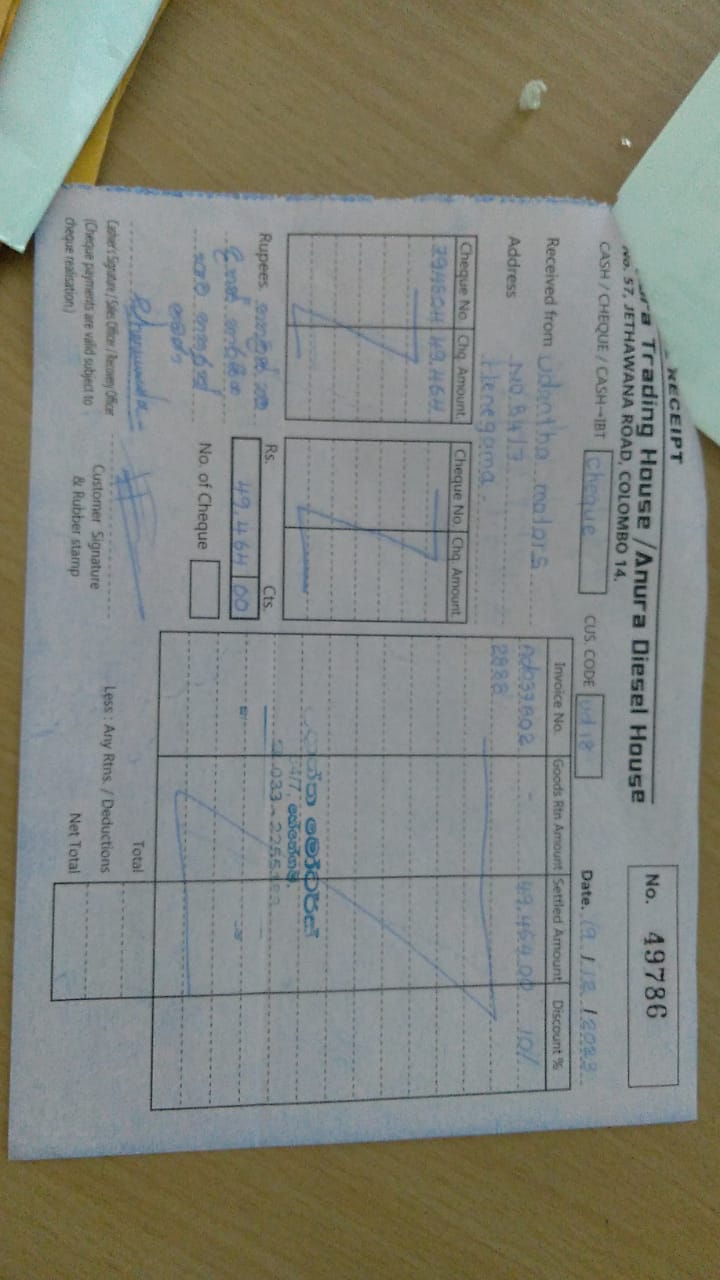 RECEIPT
Trading House / Anura Diesel House
No. 57, JETHAWANA ROAD, COLOMBO 14.
No. 49786
CASH / CHEQUE / CASH-IBT cheque
CUS. CODE ud 18
Date. 19 / 12 / 2023
Received from Udantha motors
Address No 54/7
Henegama.
Cheque No. Chq. Amount.
294504 49,464
Cheque No. Chq. Amount.
Rupees
Rs. Cts.
49,464 00
No. of Cheque
Invoice No. Goods Rtn Amount Settled Amount Discount %
Ado33802 - 49,464.00 10%
2888
54/7,
033-2255
Total
Less : Any Rtns. / Deductions
Net Total
Cashier's Signature / Sales Officer / Recovery Officer
(Cheque payments are valid subject to
cheque realisation)
Customer Signature
& Rubber stamp